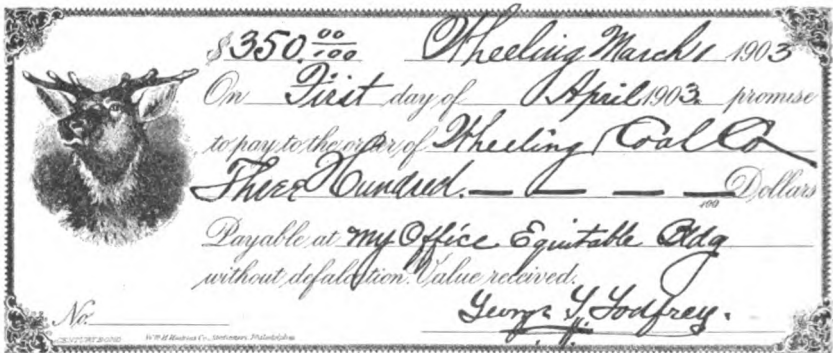 $350.00/100 Wheeling March 1 1903
On First day of April 1903. promise
to pay to the order of Wheeling Coal Co
Three Hundred. — — — — Dollars
100
Payable at my Office Equitable Bldg
without defalcation. Value received.
George Godfrey.
No.
CENTURY BOND Co., Stationers, Philadelphia